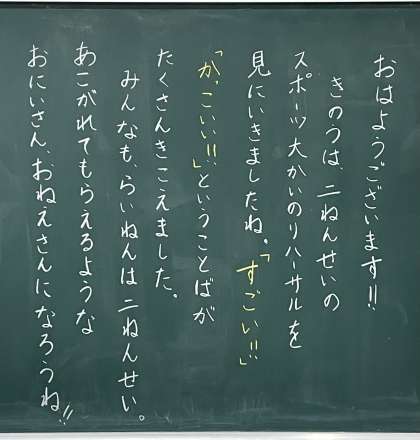 おはようございます!!
きのうは、二ねんせいの
スポーツ大かいのリハーサルを
見にいきましたね。「すごい!!」
「かっこいい!!」ということばが
たくさんきこえました。
みんなも、らいねんは二ねんせい。
あこがれてもらえるような
おにいさん、おねえさんになろうね!!